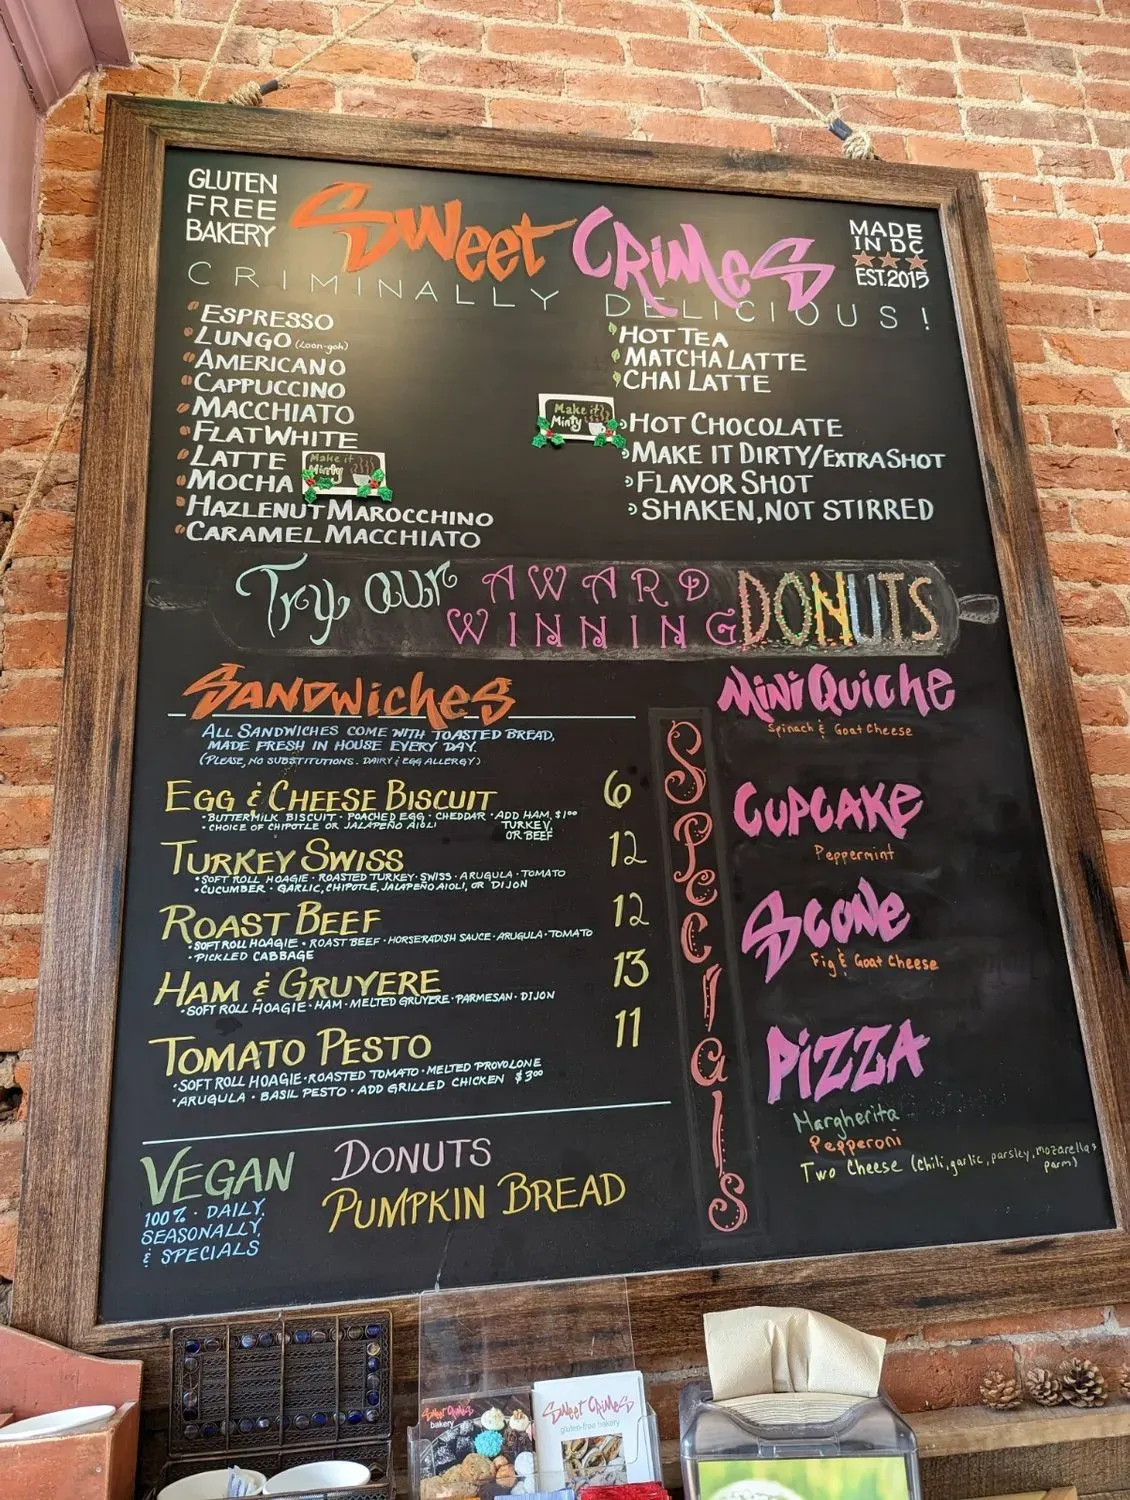 GLUTEN
FREE
BAKERY
Sweet Crimes
MADE
IN DC
EST. 2015
CRIMINALLY DELICIOUS!
ESPRESSO
LUNGO (Loon-goh)
AMERICANO
CAPPUCCINO
MACCHIATO
FLAT WHITE
LATTE
MOCHA
Make it
Minty
HAZLENUT MAROCCHINO
CARAMEL MACCHIATO
HOT TEA
MATCHA LATTE
CHAI LATTE
Make it
Minty
HOT CHOCOLATE
MAKE IT DIRTY/EXTRA SHOT
FLAVOR SHOT
SHAKEN, NOT STIRRED
Try our AWARD
WINNING DONUTS
SANDWICHES
ALL SANDWICHES COME WITH TOASTED BREAD,
MADE FRESH IN HOUSE EVERY DAY.
(PLEASE, NO SUBSTITUTIONS. DAIRY & EGG ALLERGY)
EGG & CHEESE BISCUIT 6
• BUTTERMILK BISCUIT • POACHED EGG • CHEDDAR • ADD HAM, $1.00
• CHOICE OF CHIPOTLE OR JALAPEÑO AIOLI TURKEY,
OR BEEF
TURKEY SWISS 12
• SOFT ROLL HOAGIE • ROASTED TURKEY • SWISS • ARUGULA • TOMATO
• CUCUMBER • GARLIC, CHIPOTLE, JALAPEÑO AIOLI, OR DIJON
ROAST BEEF 12
• SOFT ROLL HOAGIE • ROAST BEEF • HORSERADISH SAUCE • ARUGULA • TOMATO
• PICKLED CABBAGE
HAM & GRUYERE 13
• SOFT ROLL HOAGIE • HAM • MELTED GRUYERE • PARMESAN • DIJON
TOMATO PESTO 11
• SOFT ROLL HOAGIE • ROASTED TOMATO • MELTED PROVOLONE
• ARUGULA • BASIL PESTO • ADD GRILLED CHICKEN $3.00
VEGAN
100% • DAILY,
SEASONALLY,
& SPECIALS
DONUTS
PUMPKIN BREAD
SPECIALS
MINI QUICHE
Spinach & Goat Cheese
CUPCAKE
Peppermint
SCONE
Fig & Goat Cheese
PIZZA
Margherita
Pepperoni
Two Cheese (chili, garlic, parsley, mozarella &
parm)
Sweet Crimes
bakery
Sweet Crimes
gluten-free bakery